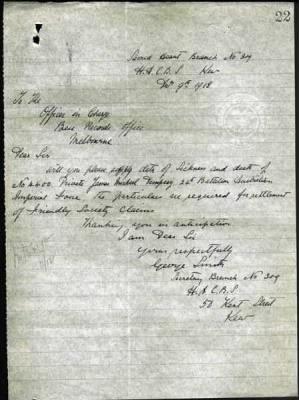 22
Sacred Heart Branch No 309
H.A.C.B.S. Kew
Dec 9th 1918
To The
Officer in Charge
Base Records Office
Melbourne
Dear Sir
Will you please supply date of Sickness and death of
No 4600. Private James Michael Dempsey, 24th Battalion Australian
Imperial Force. The particulars are required for settlement
of Friendly Society Claims
Thanking you in anticipation
I am Dear Sir
Yours respectfully
George Smith
Secretary Branch No 309
H.A.C.B.S.
50 Kent Street
Kew